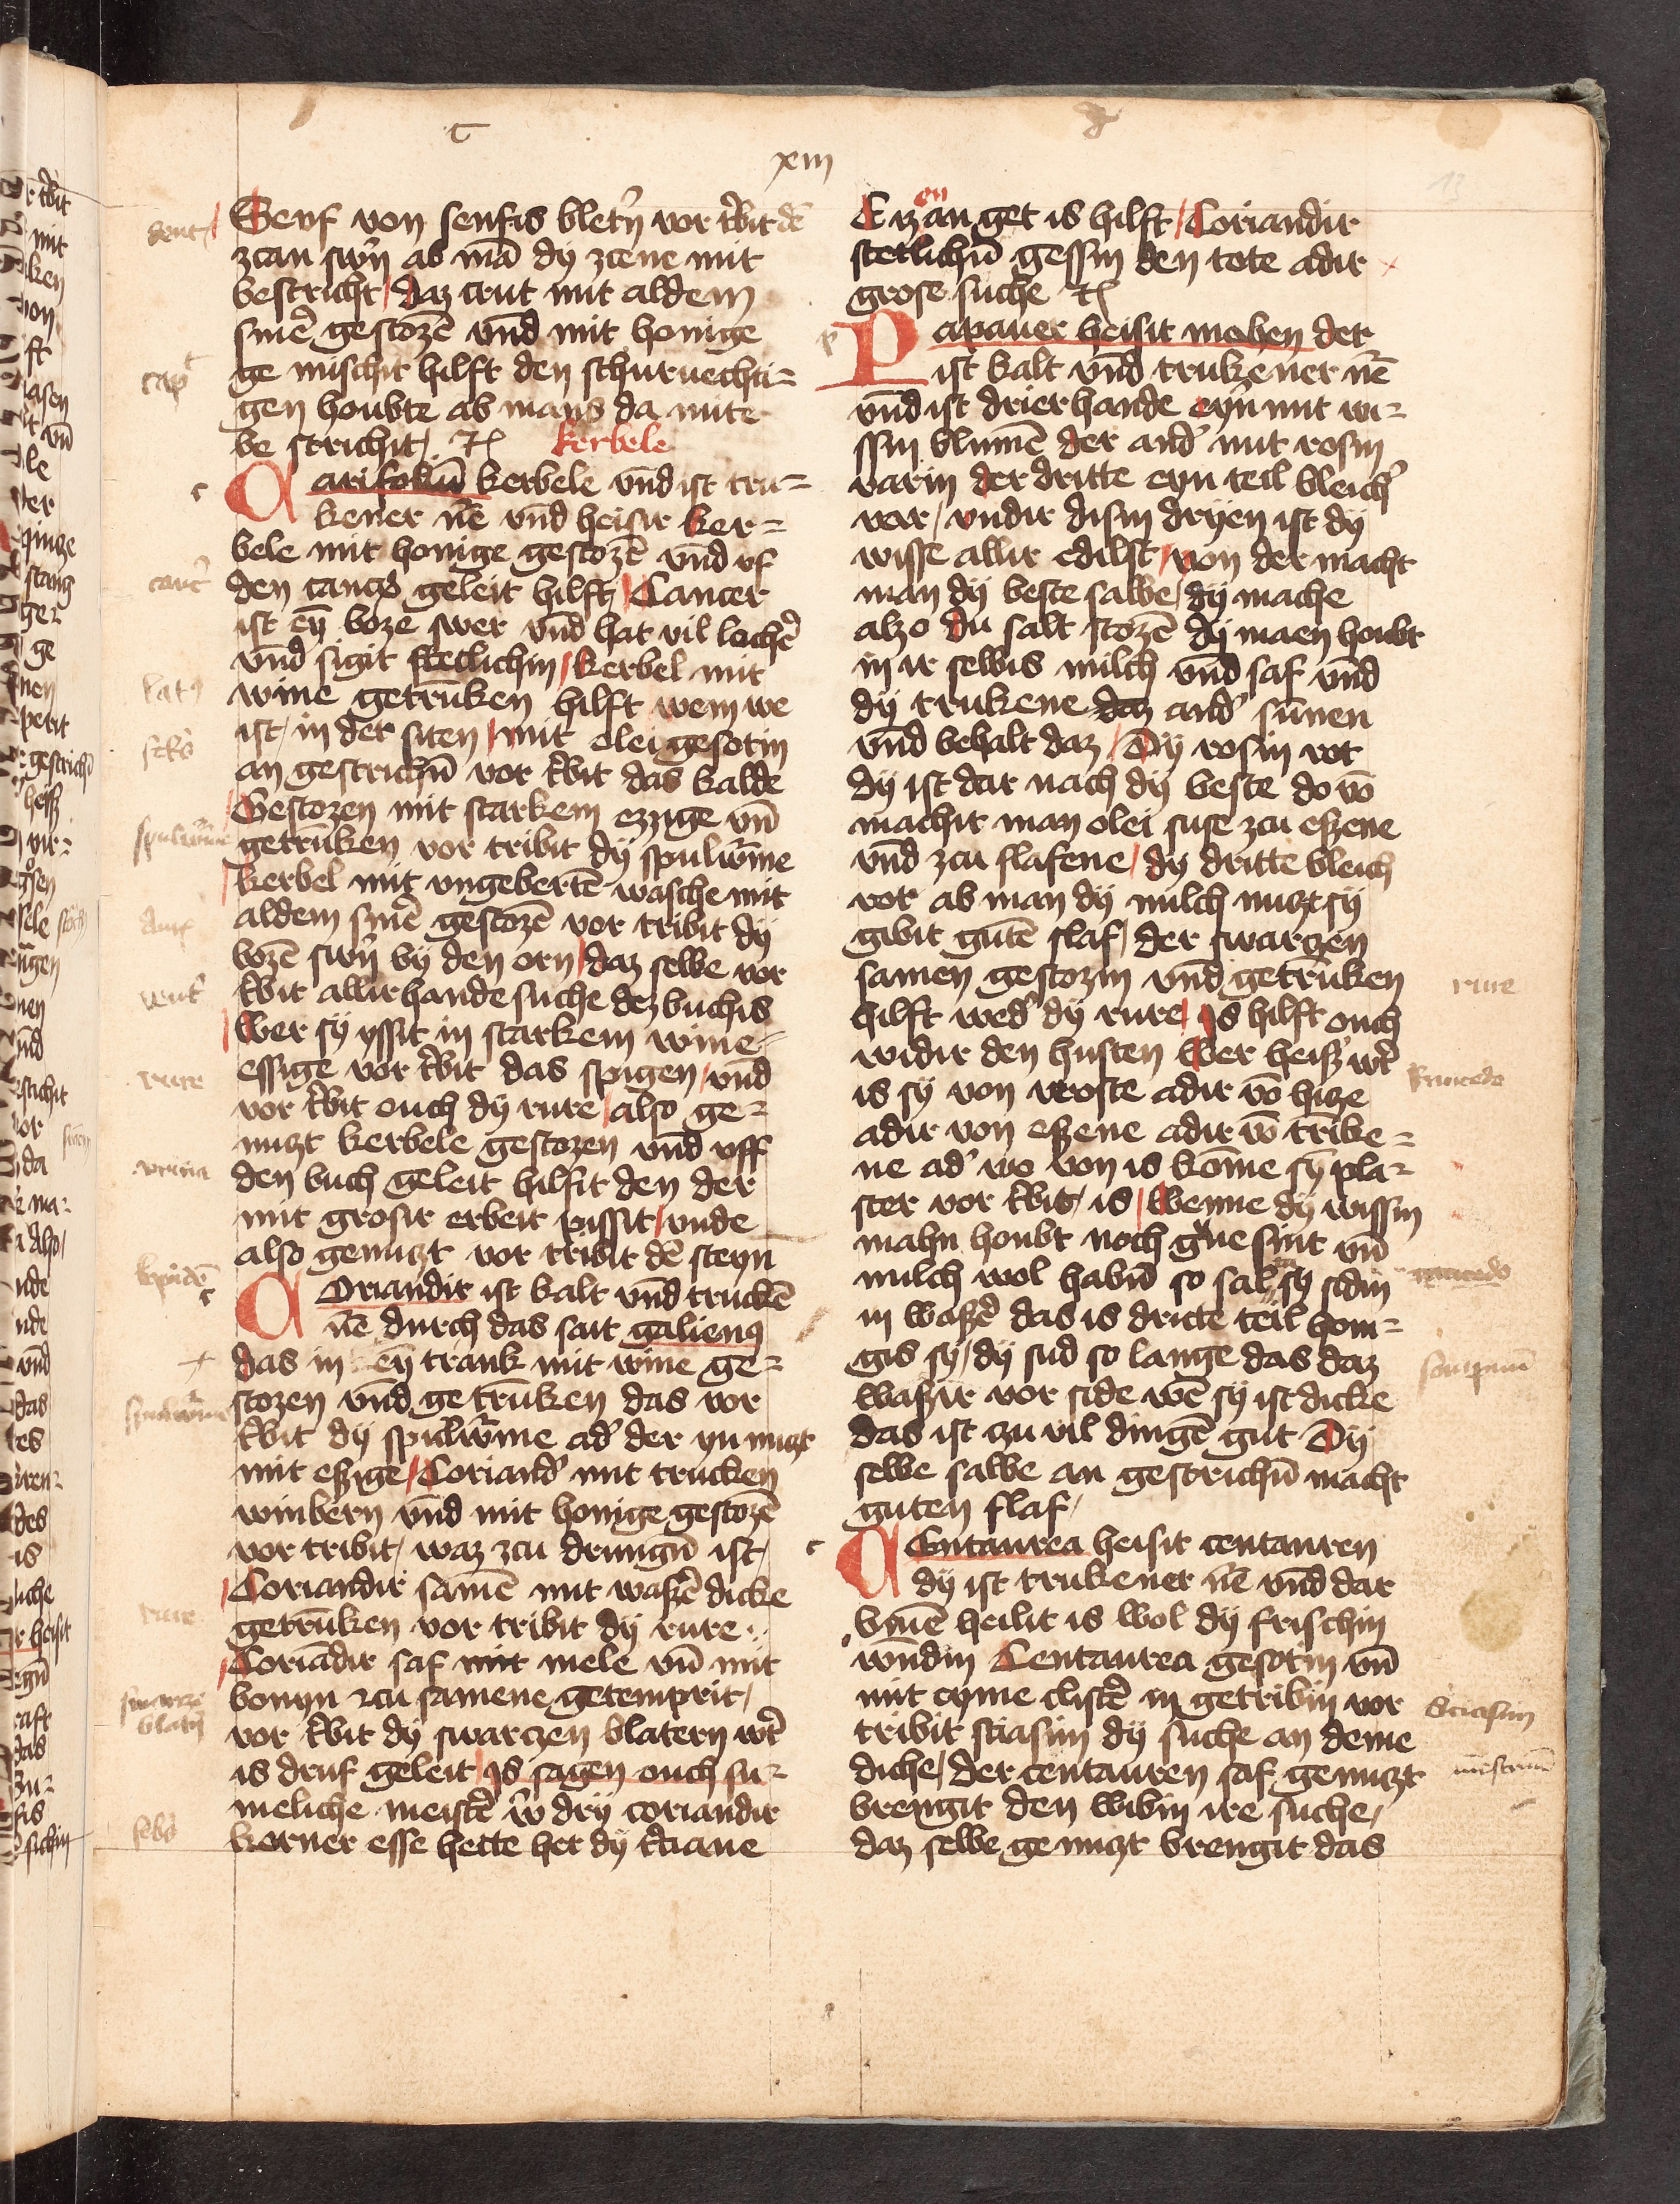 C
xiii
13
Senf von senfis blet'n vor t'bit dē
zcan sw'n ab mā dy zcene mit
bestricht / daz crut mit aldem
smē gestozē vnd mit honige
ge mischit hilft den schuruechti=
gen houbte ab mans da mite
be strichit
kerbele
Carifoliū kerbele vnd ist tru=
kener nē vnd heiser ker=
bele mit honige gestozē vnd vf
den cancꝰ geleit hilft / Cancer
ist eȳ boze swer vnd hat vil lochē
vnd sigit stetlichin / kerbel mit
wine getrūken hilft wem we
ist / in der siten / mit olei gesotin
an gestrichn̄ vor t'bit das kalde
Gestozen mit starkem ezzige vn̄
getrūken vor tribit dÿ spulw̄me
kerbel mit vngebertē wasche mit
aldem smē gestozē vor tribit dÿ
bozē sw'n bÿ den orn / daz selbe vor
t'bit allirhande suche dez buchis
Wer sÿ yssit in starkem wine
essige vor t'bit das spigen / vnd
vor t'bit ouch dÿ rure / also ge=
nuzt kerbele gestozen vnd vff
den buch geleit hilfit den der
mit grosir erbeit pissit / vnde
also genuzt vor tribit dē steyn
Coriandir ist kalt vnd truckē
nē durch das sait galienꝰ
das in eȳ trank mit wine ge=
stozen vnd ge trūken das vor
t'bit dÿ spulw̄me ad' der yn nuzt
mit eszige / Coriand' mit trucken
winbern vnd mit honige gestozē
vor tribit / waz zcu drungn̄ ist /
Coriandir samē mit waszē dicke
getrūken vor tribit dÿ rure
Coriādir saf mit mele vn̄ mit
bonyn zcu samene getemprit /
vor t'bit dÿ swarzen blatern w't
is druf geleit / Js sagen ouch su=
meliche meist'e w' drÿ coriandir
korner esse hette her dÿ t'ciane
Cizan get is hilft / Coriandir
stetlichn̄ gessin den tote adir
grose suche
Papauer heisit mohen der
ist kalt vnd trukener nē
vnd ist drierhande eyn mit wi=
ssin blumē der and' mit rosin
varin der dritte eyn teil bleich'
var / vndir disin drÿen ist dÿ
wisse allir edilst / von der macht
man dÿ beste salbe / dÿ mache
alzo du salt stozē dÿ maen houbt
in ir selbis milch vnd saf vnd
dÿ trukene daz and' sunnen
vnd behalt daz / Dÿ rosin rot
dÿ ist dar nach dÿ beste do vō
machit man olei suse zcu eszene
vnd zcu slafene / dÿ dritte bleich
rot ab man dÿ milch nuzt sÿ
gibit gutē slaf / der swarzen
samen gestozin vnd getrūken
hilft wed' dÿ rure / Js hilft ouch
widir den husten Wer heis' w't
is sÿ von vroste adir vō hitze
adir von eszene adir vō trīke=
ne ad' wo von is kōme sÿ pla=
ster vor t'bit / is / Wenne dÿ wissin
mahn houbt noch g'ne sint vn̄
milch wol habn̄ so sal sÿ sidin
in waszē das is dritte teil hon=
gis sÿ / dÿ sud so lange das daz
waszir vor side wē sÿ ist dicke
das ist zu vil dingē gut Dÿ
selbe salbe an gestrichn̄ macht
guten slaf /
Centaurea heisit centauren
dÿ ist trukener nē vnd dar
vmē heilit is wol dÿ frischin
wndin Centaurea gesotin vn̄
mit eyme clistē in getribin vor
tribit sciasim dÿ suche an deme
diche / der centauren saf genuzt
brengit den wibin ire suche /
daz selbe ge nuzt brengit das
dent
cap
canc'
latꝰ
febꝰ
spulw̄me
vent'
rure
vrina
spulw̄me
rure
swarze
blat'n
febꝰ
rure
raucedo
sompnū
Sciasim
mēstruū